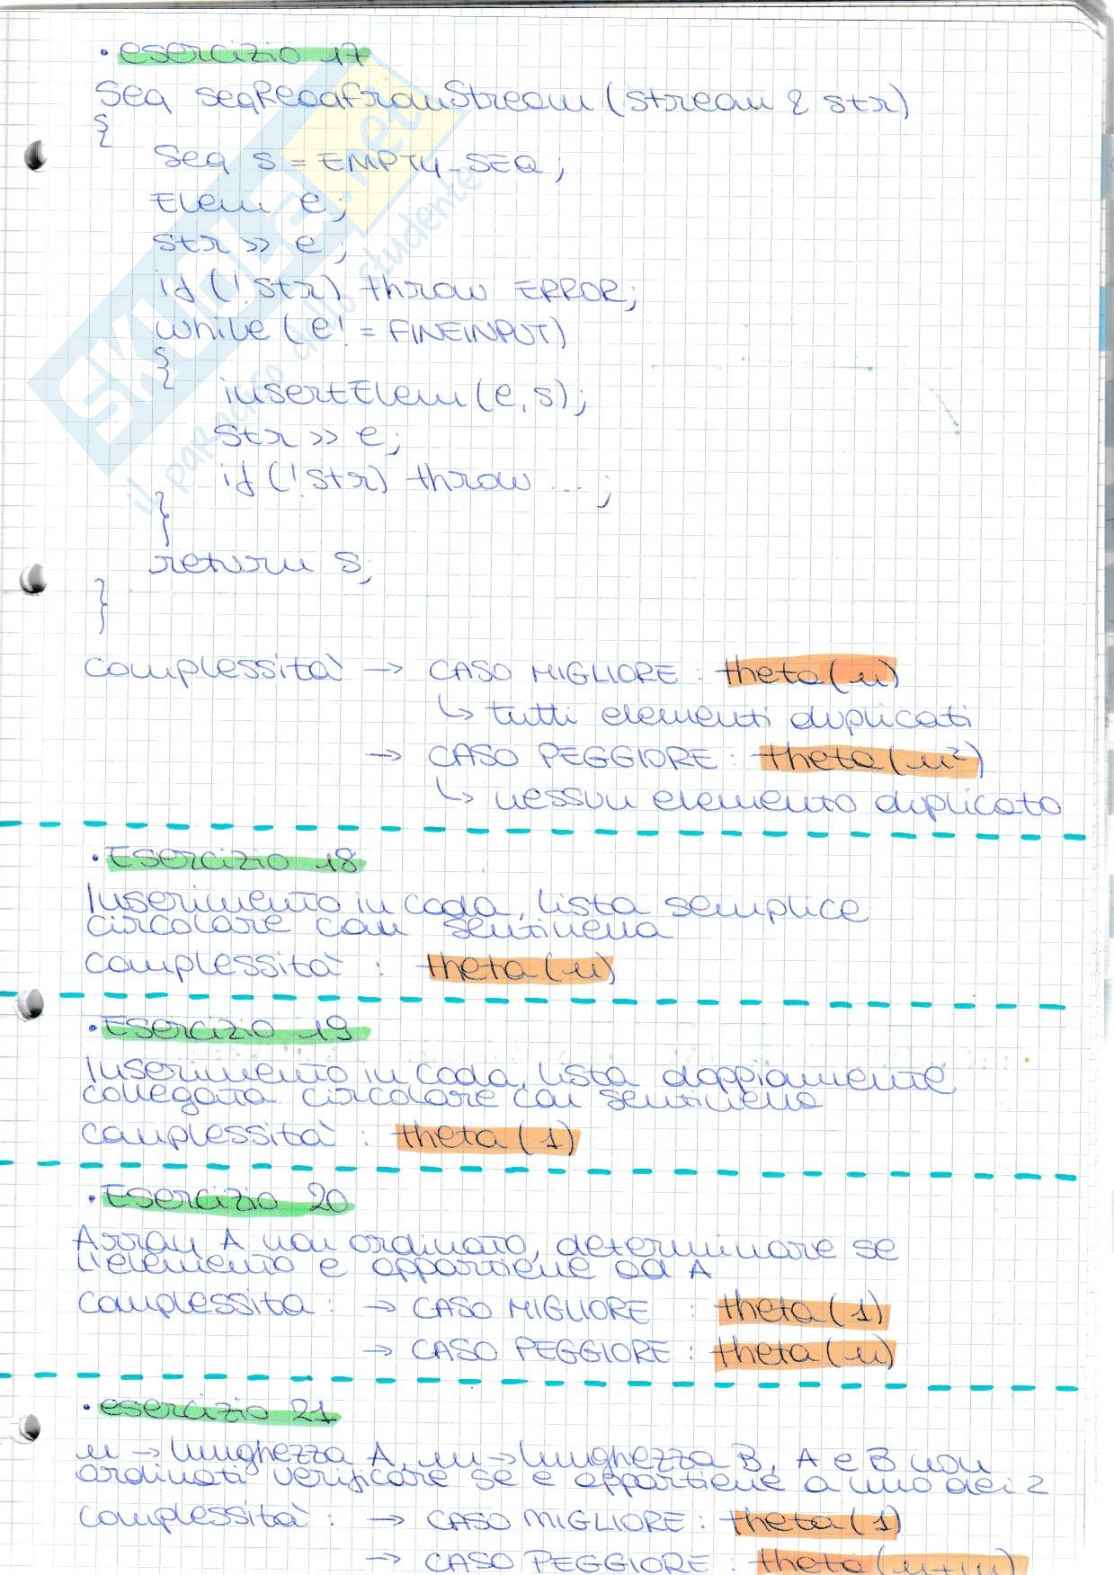 • esercizio 17
Seq seqReadFromStream (stream & str)
{
Seq s = EMPTY_SEQ;
Elem e;
str >> e;
if (!str) throw ERROR;
while (e! = FINEINPUT)
{
insertElem (e, s);
str >> e;
if (!str) throw ...;
}
return s;
}
complessità → CASO MIGLIORE : theta(n)
↳ tutti elementi duplicati
→ CASO PEGGIORE : theta(n²)
↳ nessun elemento duplicato
• Esercizio 18
Inserimento in coda, lista semplice
circolare con sentinella
complessità : theta(n)
• Esercizio 19
Inserimento in coda, lista doppiamente
collegata circolare con sentinella
complessità : theta(1)
• Esercizio 20
Array A non ordinato, determinare se
l'elemento e appartiene ad A
complessità : → CASO MIGLIORE : theta(1)
→ CASO PEGGIORE : theta(n)
• esercizio 21
n → lunghezza A, m → lunghezza B, A e B non
ordinati verificare se e appartiene a uno dei 2
complessità : → CASO MIGLIORE : theta(1)
→ CASO PEGGIORE : theta(n+m)
SKUOLA.net
il paradiso dello studente